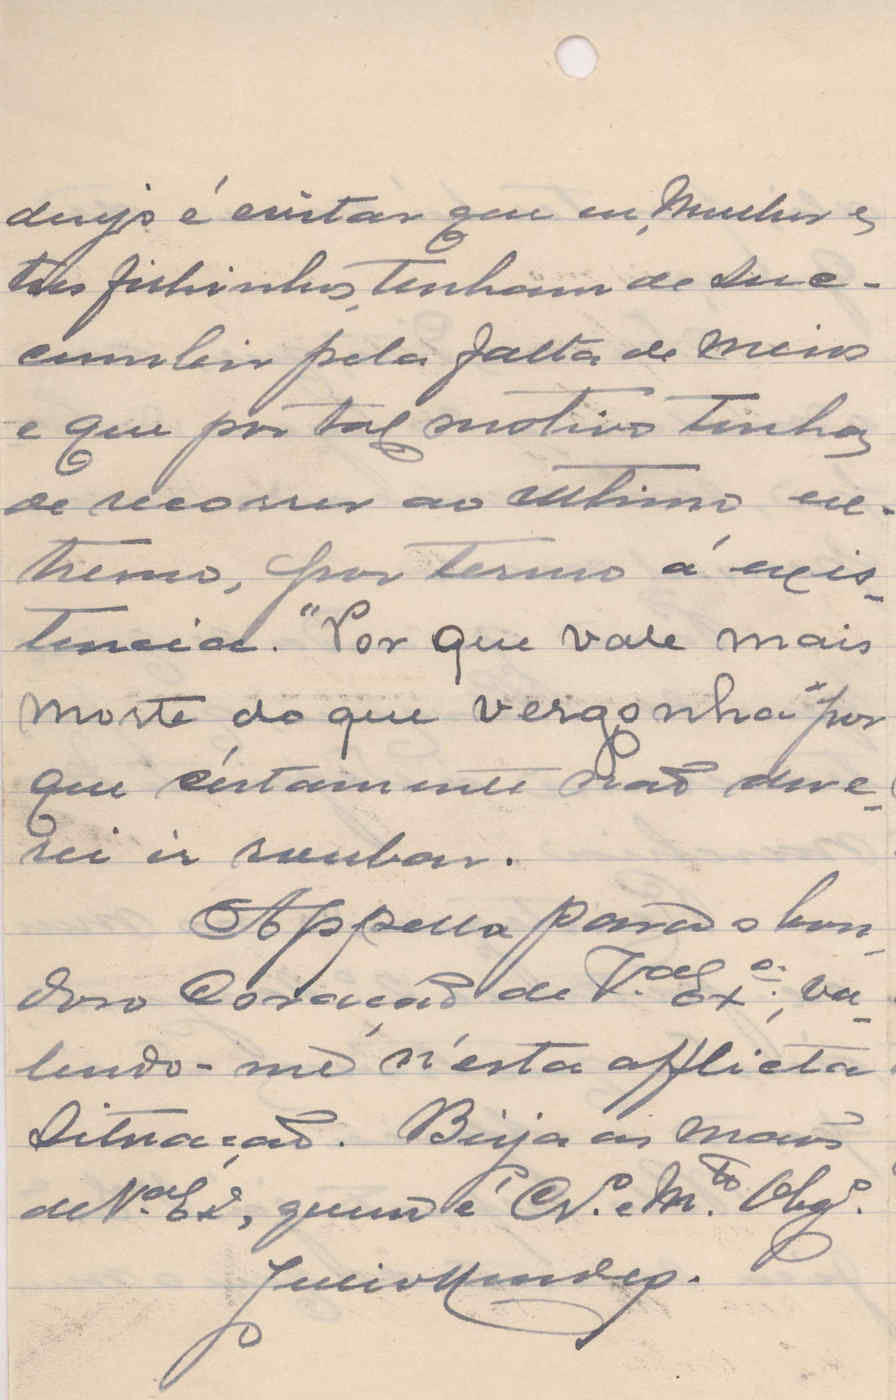 desejo é evitar que eu, Mulher e
tres filhinhos, tenham de suc-
cumbir pela falta de meios
e que por tal motivo tenha
de recorrer ao ultimo ex-
tremo, por termo á exis-
tencia. "Por que vale mais
morte do que vergonha" por
que cértamente não deve-
rei ir roubar.
Appello para o bon-
doso Coração de V.as Ex.a; va-
lendo-me n'esta afflicta
situação. Beija as mãos
de V.as Ex.a, quem é Cr.o e M.to Obg.o.
Julio Mendes.